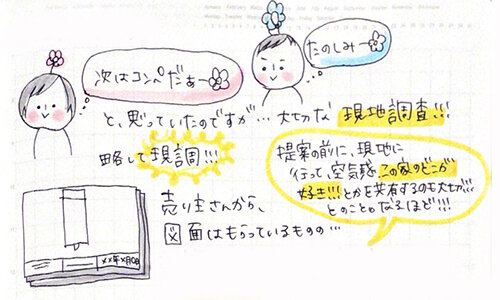 次はコンペだぁー
たのしみー
と、思っていたのですが… 大切な 現地調査!!!
略して現調!!!
提案の前に、現地に
行って、空気感、この家のどこが
好き!!!とかを共有するのも大切!!!
とのこと。なるほど!!!
売り主さんから、
図面はもらっているものの…
××年×月〇日